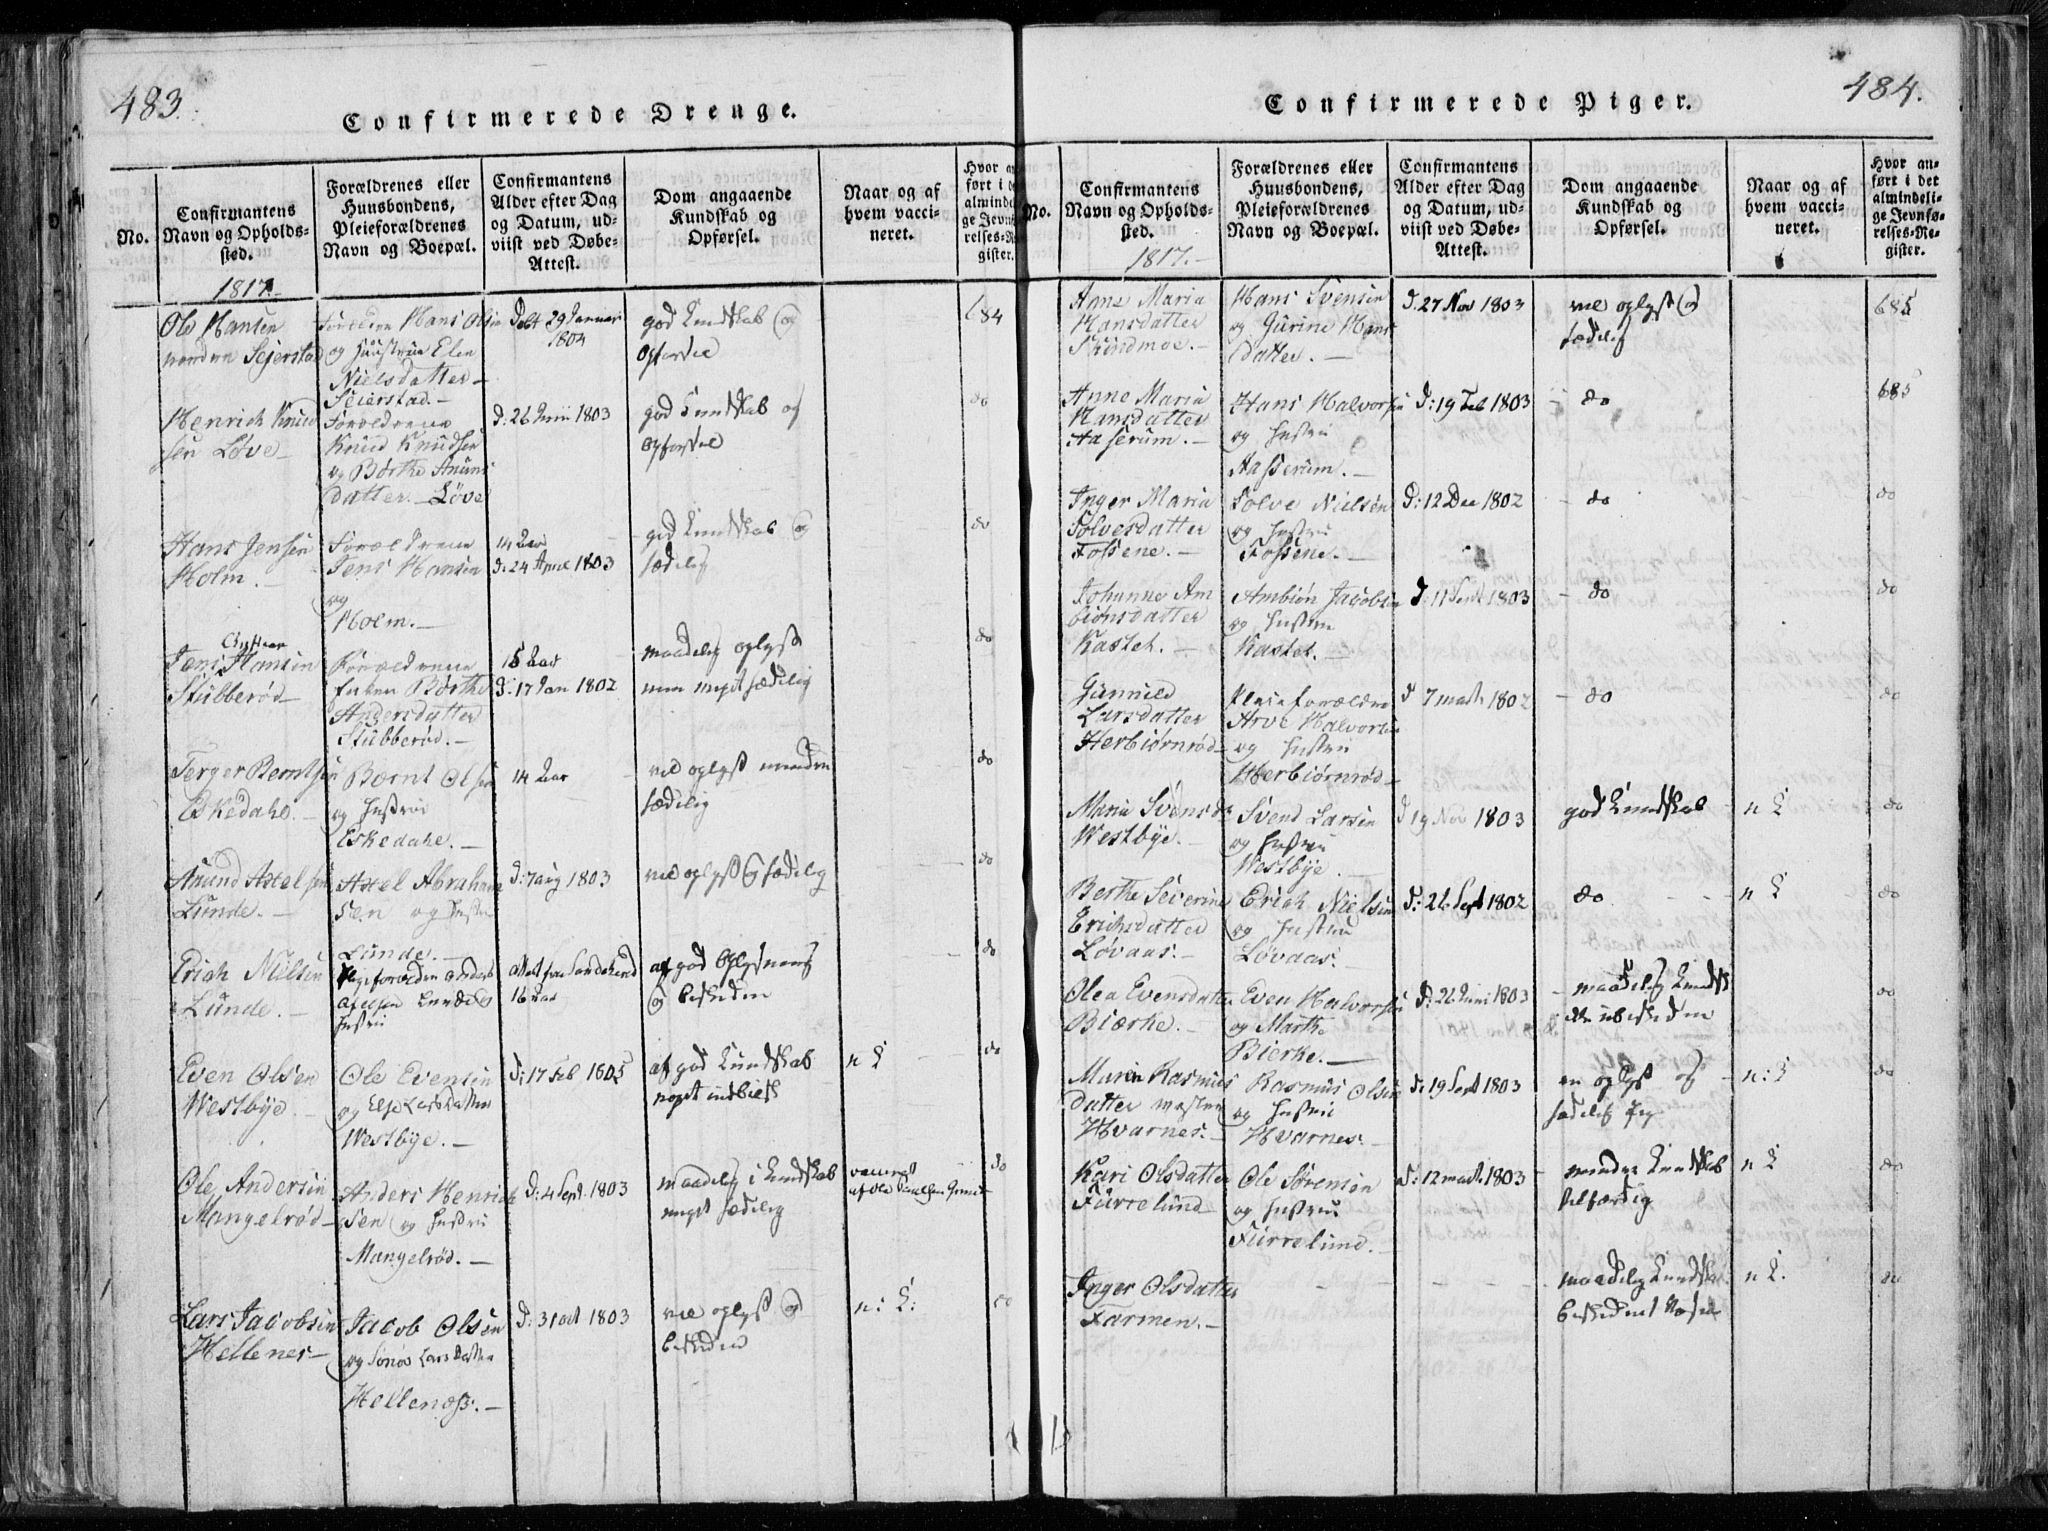 483.
Confirmerede Drenge.
No.
Confirmantens
Navn og Opholds-
sted.
1817.
Forældrenes eller
Huusbondens,
Pleieforældrenes
Navn og Boepæl.
Confirmantens
Alder efter Dag
og Datum, ud-
viist ved Døbe-
Attest.
Dom angaaende
Kundskab og
Opførsel.
Naar og af
hvem vacci-
neret.
Hvor an
ført i de
alminde
ge Jevnf
relses-R
gister.
Ole Hansen
nordre Sejerstad
Forældrene Hans Olsen
og Huustrue Elen
Nielsdatter
Seierstad.
Døbt 29 Januar
1804
god Kundskab og
Opførsel
684
Henrich Knud
sen Løve
Forældrene
Knud Knudsen
og Børthe Anuns
datter. Løve
D: 26 Juni 1803
god Kundskab og
Opførsel
do
Hans Jensen
Holm.
Forældrene
Jens Hansen
og
Holm.
14 Aar
D. 24 April 1803
god Kundskab og
sædelig
do
Jens Hansen
Stubberød
Forældrene
Børthe
Andersdatter
Stubberød.
15 Aar
D: 17 Jan 1802
maadelig oplyst
men meget sædelig
do
Terger Berntsen
Eskedahl.
Bernt Olsen
og Hustrue
Eskedahl.
14 Aar
vel oplyst
sædelig
do
Anund Axelsen
Lunde.
Axel Abraham
sen og Hustru
Lunde.
D: 7 aug 1803
vel oplyst og sædelig
do
Erich Nielsen
Lunde.
Anders
Lunde
Hustru
16 Aar
af god Oplysning
og beskeden
do
Even Olsen
Westbye.
Ole Evensen
og Else Larsdatter
Westbye.
D: 17 Feb 1805
af god Kundskab
noget indbildsk
n L
do
Ole Andersen
Mangelrød
Anders Henrich
sen og Hustru
Mangelrød.
D: 4 Sept. 1803
maadelig i Kundskab
meget sædelig
do
Lars Jacobsen
Hellenes
Jacob Olsen
og Larsdatter
Hellenæss.
D: 31 oct 1803
vel oplyst og
beskeden
n: L:
do
484.
Confirmerede Piger.
No.
Confirmantens
Navn og Opholds-
sted.
1817.
Forældrenes eller
Huusbondens,
Pleieforældrenes
Navn og Boepæl.
Confirmantens
Alder efter Dag
og Datum, ud-
viist ved Døbe-
Attest.
Dom angaaende
Kundskab og
Opførsel.
Naar og af
hvem vacci-
neret.
Hvor an-
ført i det
almindeli-
ge Jevnfø-
relses-Re-
gister.
Anne Maria
Hansdatter
Skindmoe.
Hans Svensen
og Gurine Hans
datter.
D. 27 Nov 1803
vel oplyst og
sædelig
685
Anne Maria
Hansdatter
Aaserum.
Hans Halvorsen
og Hustru
Aasserum.
D: 19 Feb 1803
do
685
Inger Maria
Solvesdatter
Fossene.
Solve Nielsen
og Hustru
Fossene.
D: 12 Dec 1802
do
do
Johanne Am
biønsdatter
Kastet.
Ambiøn Jacobsen
og Hustru
Kastet.
D: 11 Sept 1803
do
do
Gunnild
Larsdatter
Herbiørnrød
Pleieforældre
Arve Halvorsen
og Hustru
Herbiørnrød
D 7 marts 1802
do
do
Maria Svensd
Westbye.
Svend Larsen
og Hustru
Westbye.
D 19 Nov 1803
god Kundskab
n L
do
Berthe Severine
Erichsdatter
Løvaas.
Erich Nielsen
og Hustru
Løvaas.
D: 26 Sept 1802
do
n L
do
Olea Evensdatter
Biærke.
Even Halvorsen
og Marthe
Bierke.
D: 26 Juni 1803
maadelig Kundsk
ubeskeden
do
Maren Rasmus
datter
Hvarnes.
Rasmus Olsen
og Hustru
Hvarnes.
D: 19 Sept 1803
en oplyst og
sædelig Pige
n: L
do
Kari Olsdatter
Furrelund
Ole Sørensen
og Hustru
Furrelund.
D: 12 marts 1803
mindre Kundskab
n L
do
Inger Olsdatter
Farmen.
maadelig Kundskab
n L.
do